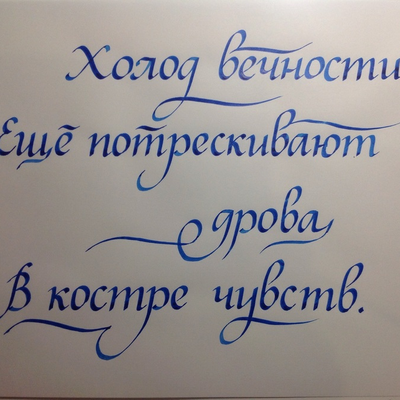 Холод вечности
Ещё потрескивают
дрова
В костре чувств.